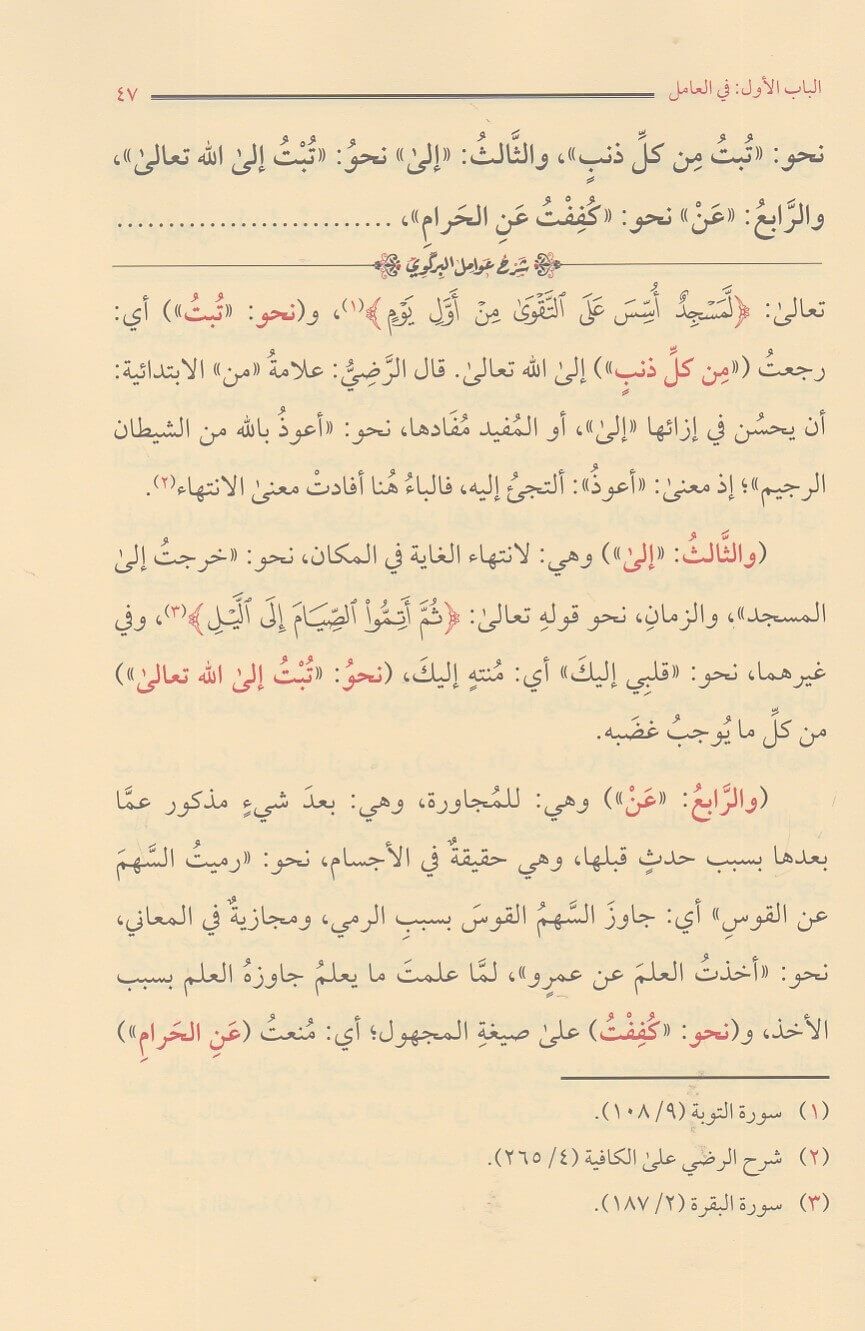 الباب الأول: في العامل ٤٧
نحو: «تُبتُ مِن كلِّ ذنبٍ»، والثَّالثُ: «إلىٰ» نحوُ: «تُبْتُ إلىٰ الله تعالىٰ»،
والرَّابعُ: «عَنْ» نحو: «كُفِفْتُ عَنِ الحَرامِ»، ..........................
شرح عوامل البركوي
تعالىٰ: ﴿لَّمَسْجِدٌ أُسِّسَ عَلَى ٱلتَّقْوَىٰ مِنْ أَوَّلِ يَوْمٍ﴾(١)، و(نحو: «تُبتُ») أي:
رجعتُ («مِن كلِّ ذنبٍ») إلىٰ الله تعالىٰ. قال الرَّضِيُّ: علامةُ «من» الابتدائية:
أن يحسُن في إزائها «إلىٰ»، أو المُفيد مُفَادها، نحو: «أعوذُ بالله من الشيطان
الرجيم»؛ إذ معنىٰ: «أعوذُ»: ألتجئُ إليه، فالباءُ هُنا أفادتْ معنىٰ الانتهاء(٢).
(والثَّالثُ: «إلىٰ») وهي: لانتهاء الغاية في المكان، نحو: «خرجتُ إلىٰ
المسجد»، والزمانِ، نحو قولهِ تعالىٰ: ﴿ثُمَّ أَتِمُّوا۟ ٱلصِّيَامَ إِلَى ٱلَّيْلِ﴾(٣)، وفي
غيرهما، نحو: «قلبِي إليكَ» أي: مُنتهٍ إليكَ، (نحوُ: «تُبْتُ إلىٰ الله تعالىٰ»)
من كلِّ ما يُوجبُ غضَبه.
(والرَّابعُ: «عَنْ») وهي: للمُجاورة، وهي: بعدَ شيءٍ مذكور عمَّا
بعدها بسبب حدثٍ قبلها، وهي حقيقةٌ في الأجسام، نحو: «رميتُ السَّهمَ
عن القوسِ» أي: جاوزَ السَّهمُ القوسَ بسببِ الرمي، ومجازيةٌ في المعاني،
نحو: «أخذتُ العلمَ عن عمرٍو»، لمَّا علمتَ ما يعلمُ جاوزهُ العلم بسبب
الأخذ، و(نحو: «كُفِفْتُ) علىٰ صيغةِ المجهول؛ أي: مُنعتُ (عَنِ الحَرامِ»)
(١) سورة التوبة (٩/ ١٠٨).
(٢) شرح الرضي علىٰ الكافية (٤/ ٢٦٥).
(٣) سورة البقرة (٢/ ١٨٧).